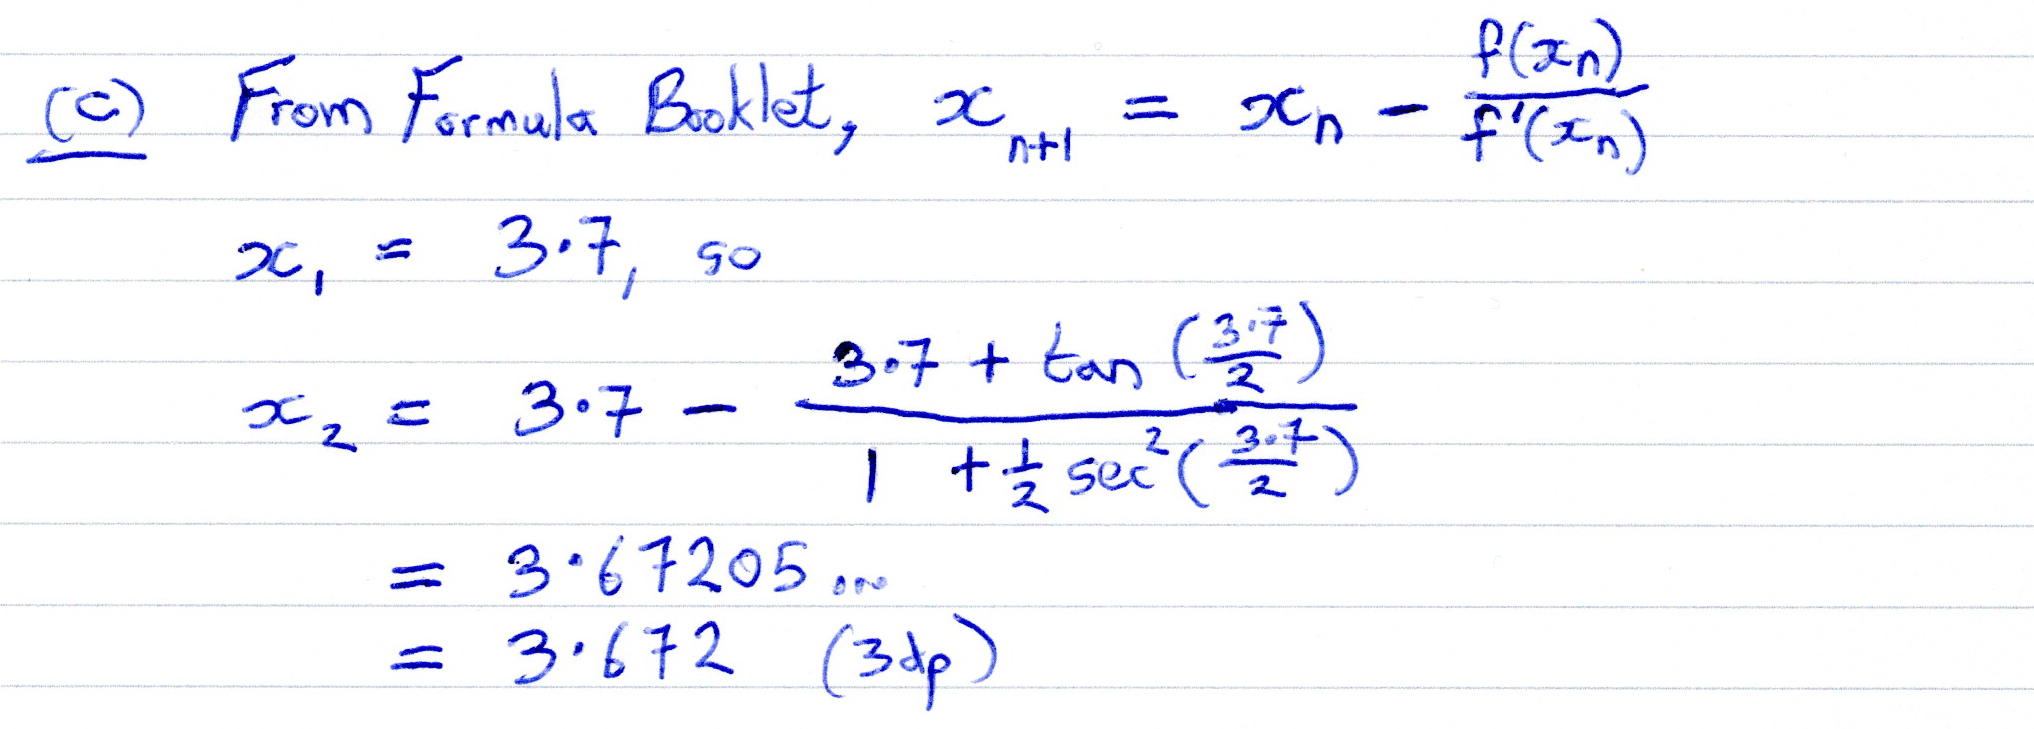 (c) From Formula Booklet, xₙ₊₁ = xₙ - f(xₙ)/f'(xₙ)
x₁ = 3·7, so
x₂ = 3·7 - (3·7 + tan (3·7/2))/(1 + ½ sec²(3·7/2))
= 3·67205...
= 3·672 (3dp)